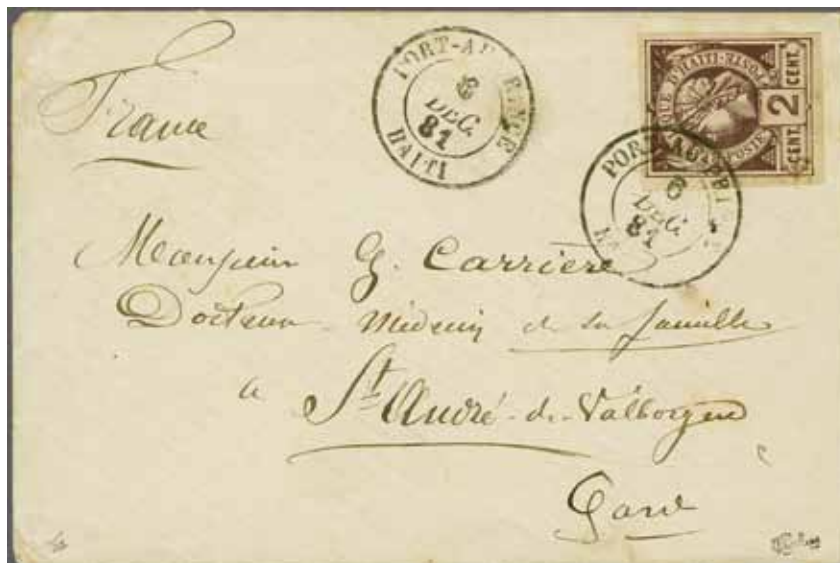 France
PORT-AU-PRINCE
6
DEC.
81
HAITI
2
CENT.
CENT.
PORT-AU-PRI
6
DEC.
81
HA
Monsieur G. Carrière
Docteur Médecin de la famille
a St. André-de-Valborgne
Gard